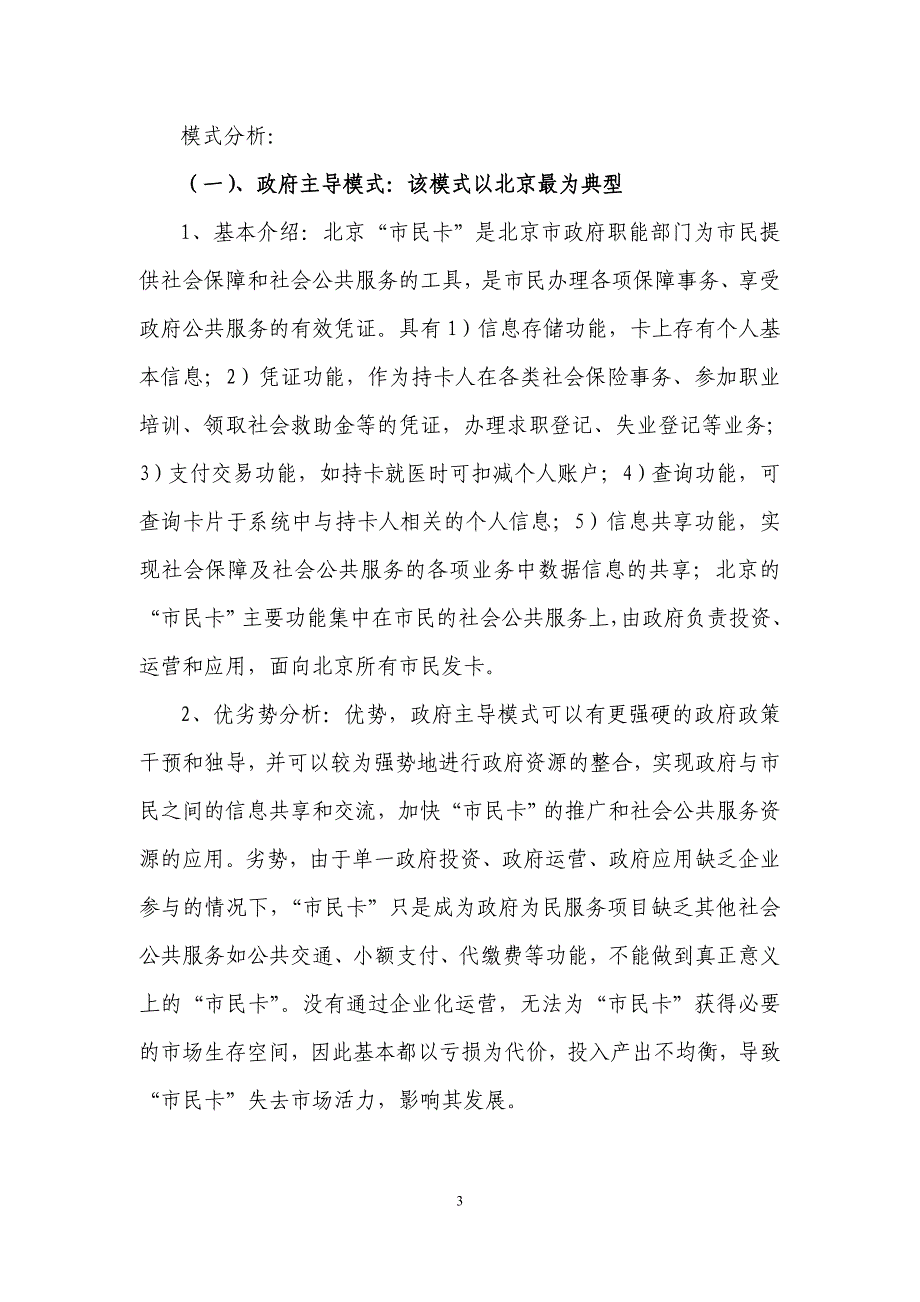 模式分析：
（一）、政府主导模式：该模式以北京最为典型
1、基本介绍：北京“市民卡”是北京市政府职能部门为市民提
供社会保障和社会公共服务的工具，是市民办理各项保障事务、享受
政府公共服务的有效凭证。具有1）信息存储功能，卡上存有个人基
本信息；2）凭证功能，作为持卡人在各类社会保险事务、参加职业
培训、领取社会救助金等的凭证，办理求职登记、失业登记等业务；
3）支付交易功能，如持卡就医时可扣减个人账户；4）查询功能，可
查询卡片于系统中与持卡人相关的个人信息；5）信息共享功能，实
现社会保障及社会公共服务的各项业务中数据信息的共享；北京的
“市民卡”主要功能集中在市民的社会公共服务上，由政府负责投资、
运营和应用，面向北京所有市民发卡。
2、优劣势分析：优势，政府主导模式可以有更强硬的政府政策
干预和独导，并可以较为强势地进行政府资源的整合，实现政府与市
民之间的信息共享和交流，加快“市民卡”的推广和社会公共服务资
源的应用。劣势，由于单一政府投资、政府运营、政府应用缺乏企业
参与的情况下，“市民卡”只是成为政府为民服务项目缺乏其他社会
公共服务如公共交通、小额支付、代缴费等功能，不能做到真正意义
上的“市民卡”。没有通过企业化运营，无法为“市民卡”获得必要
的市场生存空间，因此基本都以亏损为代价，投入产出不均衡，导致
“市民卡”失去市场活力，影响其发展。
3